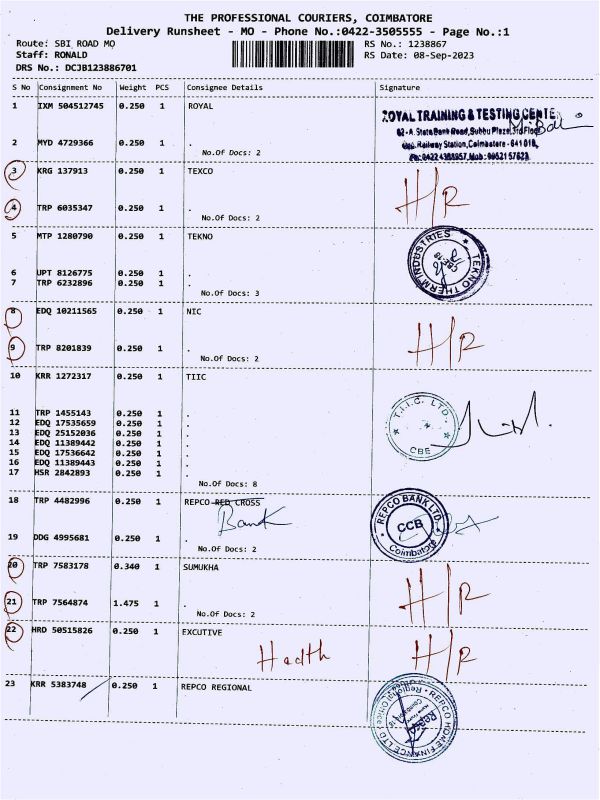 THE PROFESSIONAL COURIERS, COIMBATORE
Delivery Runsheet - MO - Phone No.:0422-3505555 - Page No.:1
Route: SBI ROAD MO RS No.: 1238867
Staff: RONALD RS Date: 08-Sep-2023
DRS No.: DCJB123886701
S No Consignment No Weight PCS Consignee Details Signature
1 IXM 504512745 0.250 1 ROYAL
ROYAL TRAINING & TESTING CENTE
62-A, State Bank Road, Subbu Plaza, 3rd Floor
Opp. Railway Station, Coimbatore - 641 018.
2 MYD 4729366 0.250 1 .
No.Of Docs: 2
3 KRG 137913 0.250 1 TEXCO
H/R
4 TRP 6035347 0.250 1 .
No.Of Docs: 2
5 MTP 1280790 0.250 1 TEKNO
TEKNO THERM INDUSTRIES
6 UPT 8126775 0.250 1 .
7 TRP 6232896 0.250 1 .
No.Of Docs: 3
8 EDQ 10211565 0.250 1 NIC
H/R
9 TRP 8201839 0.250 1 .
No.Of Docs: 2
10 KRR 1272317 0.250 1 TIIC
T.I.I.C. LTD.
CBE
11 TRP 1455143 0.250 1 .
12 EDQ 17535659 0.250 1 .
13 EDQ 25152036 0.250 1 .
14 EDQ 11389442 0.250 1 .
15 EDQ 17536642 0.250 1 .
16 EDQ 11389443 0.250 1 .
17 HSR 2842893 0.250 1 .
No.Of Docs: 8
18 TRP 4482996 0.250 1 REPCO RED CROSS
Bank
REPCO BANK LTD.
CCB
Coimbatore
19 DDG 4995681 0.250 1 .
No.Of Docs: 2
20 TRP 7583178 0.340 1 SUMUKHA
H/R
21 TRP 7564874 1.475 1 .
No.Of Docs: 2
22 HRD 50515826 0.250 1 EXCUTIVE
Hedth H/R
23 KRR 5383748 0.250 1 REPCO REGIONAL
REPCO HOME FINANCE LTD
Regional Office